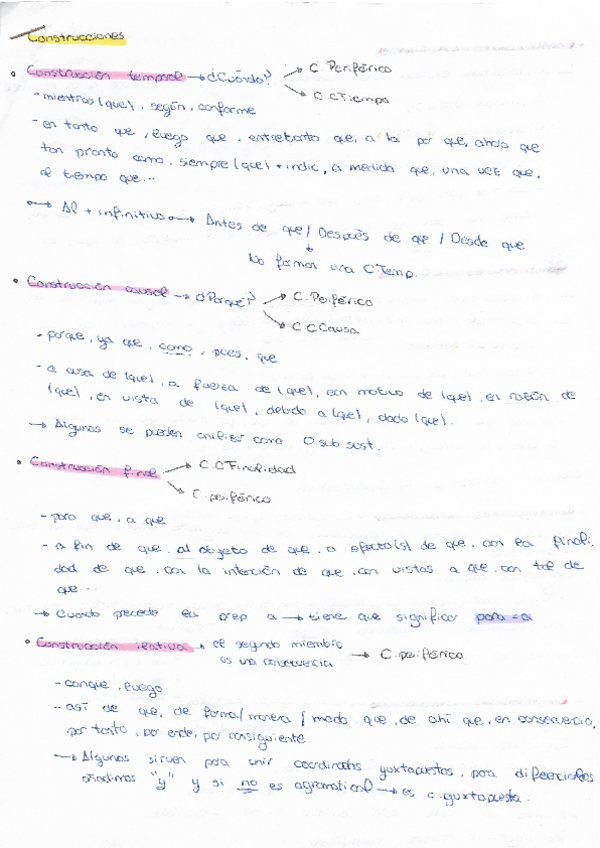 Construcciones
• Construcción temporal → ¿Cuándo? → C. Periférico
→ C.C.Tiempo
- mientras (que), según, conforme
- en tanto que, luego que, entretanto que, a la par que, ahora que
tan pronto como, siempre (que) + indic, a medida que, una vez que,
al tiempo que...
→ Al + infinitivo → Antes de que / Después de que / Desde que
↓
No forman una C.Temp.
• Construcción causal → ¿Porqué? → C. Periférico
→ C.C.Causa
- porque, ya que, como, pues, que
- a causa de (que), a fuerza de (que), con motivo de (que), en razón de
(que), en vista de (que), debido a (que), dado (que).
→ Algunas se pueden analizar como O.sub sust.
• Construcción final → C.C.Finalidad
→ C. periférico
- para que, a que
- a fin de que, al objeto de que, a efecto(s) de que, con la finali-
dad de que, con la intención de que, con vistas a que, con tal de
que...
→ Cuando precede la prep a → tiene que significar para = a
• Construcción ilativa → el segundo miembro
es una consecuencia → C. periférico
- conque, luego
- así de que, de forma/manera/modo que, de ahí que, en consecuencia,
por tanto, por ende, por consiguiente
→ Algunas sirven para unir coordinadas yuxtapuestas, para diferenciarlas
añadimos "y" y si no es agramatical → es c. yuxtapuesta.